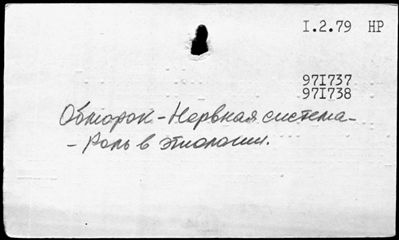 I.2.79 НР
97I737
97I738
Обморок - Нервная система -
- Роль в этиологии.